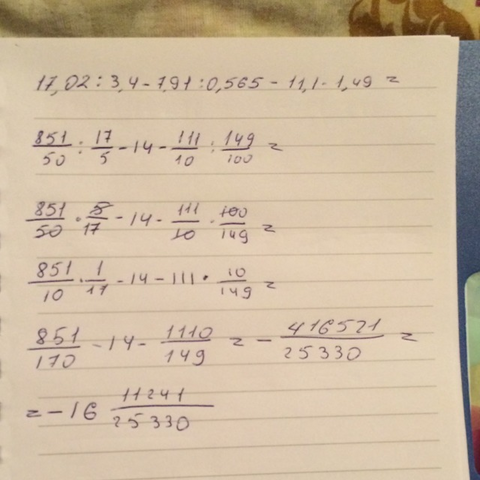 17,02 : 3,4 - 7,91 : 0,565 - 11,1 - 1,49 =
851/50 : 17/5 - 14 - 111/10 : 149/100 =
851/50 · 5/17 - 14 - 111/10 · 100/149 =
851/10 · 1/17 - 14 - 111 · 10/149 =
851/170 - 14 - 1110/149 = - 416521/25330 =
= - 16 11241/25330